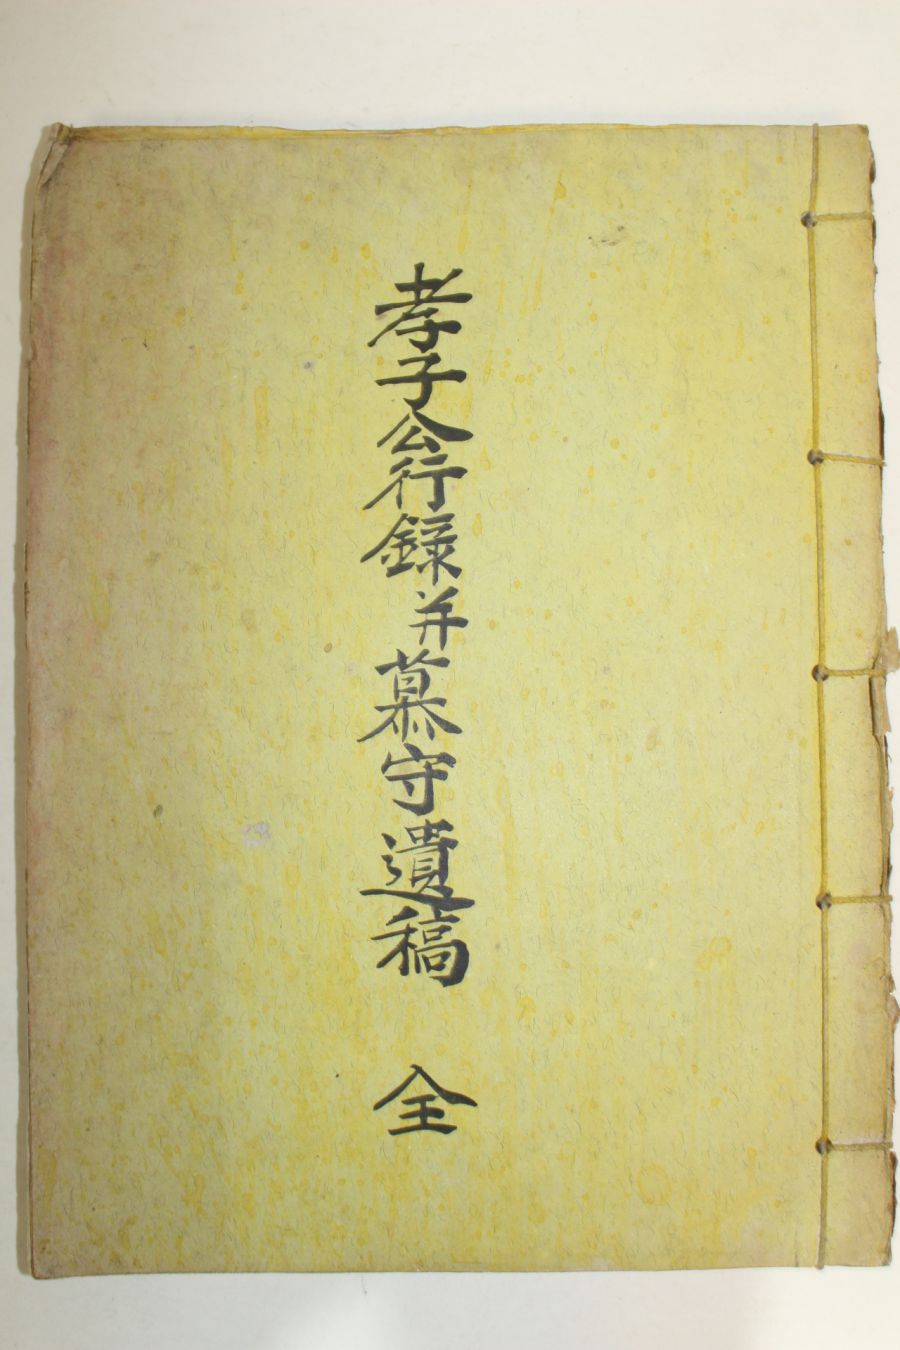 孝子公行錄并慕守遺稿 全